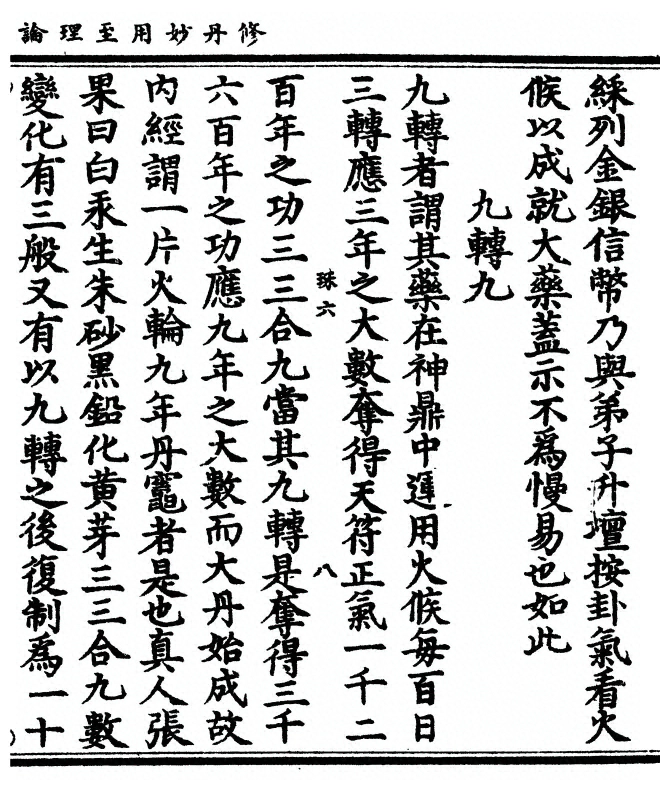 修丹妙用至理論
綵列金銀信幣乃與弟子升壇按卦氣看火
候以成就大藥蓋示不爲慢易也如此
九轉九
九轉者謂其藥在神鼎中運用火候每百日
三轉應三年之大數奪得天符正氣一千二
珠六
八
百年之功三三合九當其九轉是奪得三千
六百年之功應九年之大數而大丹始成故
內經謂一片火輪九年丹竈者是也真人張
果曰白汞生朱砂黑鉛化黄芽三三合九數
變化有三般又有以九轉之後復制爲一十